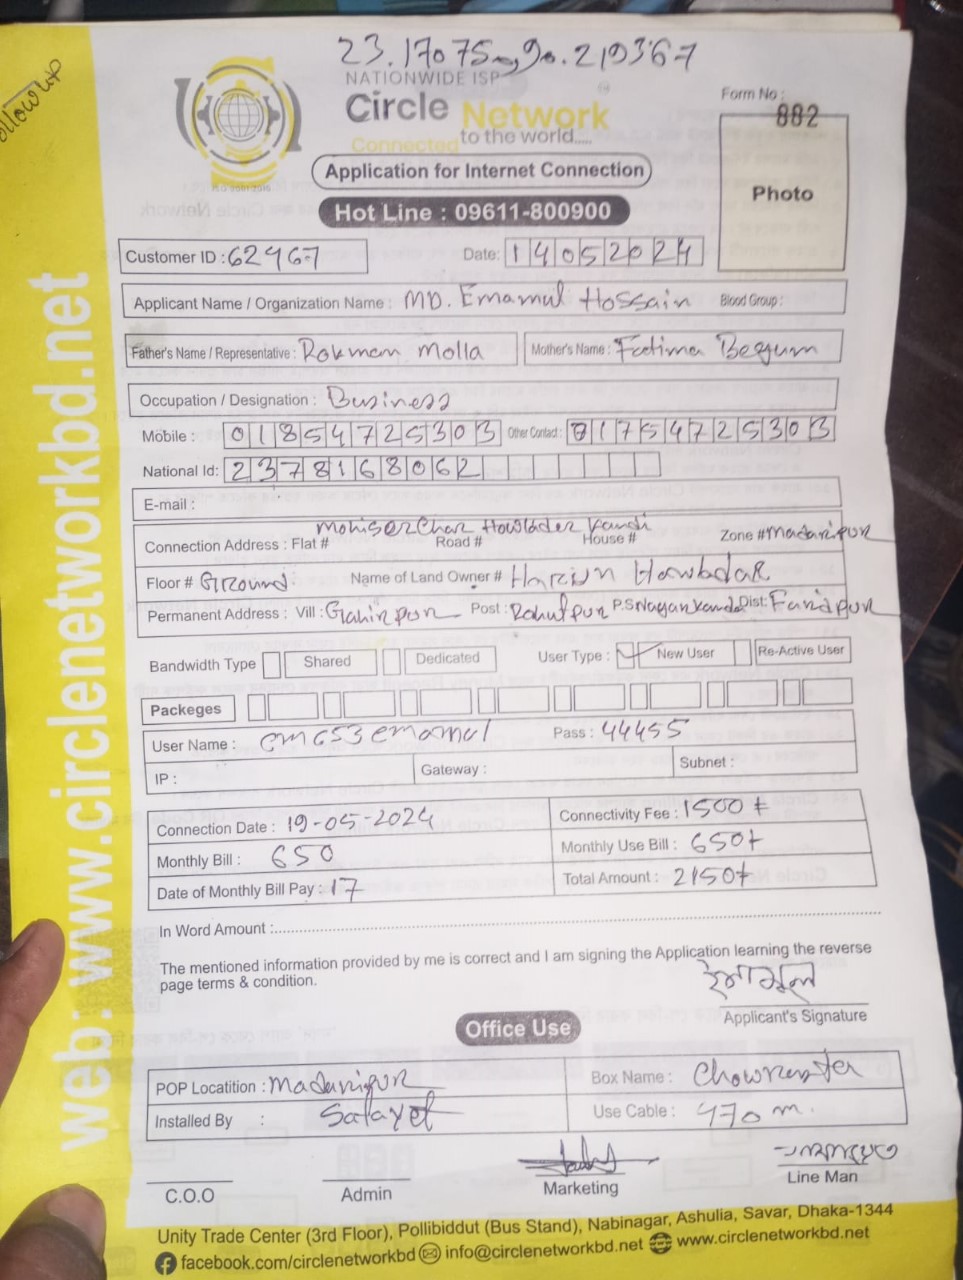 23.17075, 90.219367
Follow up
NATIONWIDE ISP
Circle Network
Connected to the world.....
Form No :
882
Photo
Application for Internet Connection
Hot Line : 09611-800900
Customer ID : 62467
Date: 14052024
Applicant Name / Organization Name : MD. Emamul Hossain Blood Group :
Father's Name / Representative : Rokman Molla Mother's Name : Fatima Begum
Occupation / Designation : Business
Mobile : 01854725303 Other Contact : 01754725303
National Id: 2378168062
E-mail :
Howlader Kandi
Connection Address : Flat # Road # House # Zone # Madaripur
Floor # Ground Name of Land Owner # Harun Howladar
Permanent Address : Vill : Post : P.S Dist: Faridpur
Bandwidth Type Shared Dedicated User Type : New User Re-Active User
Packeges
User Name : cm653emamul Pass : 44455
IP : Gateway : Subnet :
Connection Date : 19-05-2024 Connectivity Fee : 1500+
Monthly Bill : 650 Monthly Use Bill : 650+
Date of Monthly Bill Pay : 17 Total Amount : 2150+
In Word Amount :
The mentioned information provided by me is correct and I am signing the Application learning the reverse
page terms & condition.
ইমামুল
Applicant's Signature
Office Use
POP Locatition : Madaripur Box Name :
Installed By : Safayet Use Cable : 470 m.
C.O.O Admin Marketing Line Man
Unity Trade Center (3rd Floor), Pollibiddut (Bus Stand), Nabinagar, Ashulia, Savar, Dhaka-1344
facebook.com/circlenetworkbd info@circlenetworkbd.net www.circlenetworkbd.net
web: www.circlenetworkbd.net